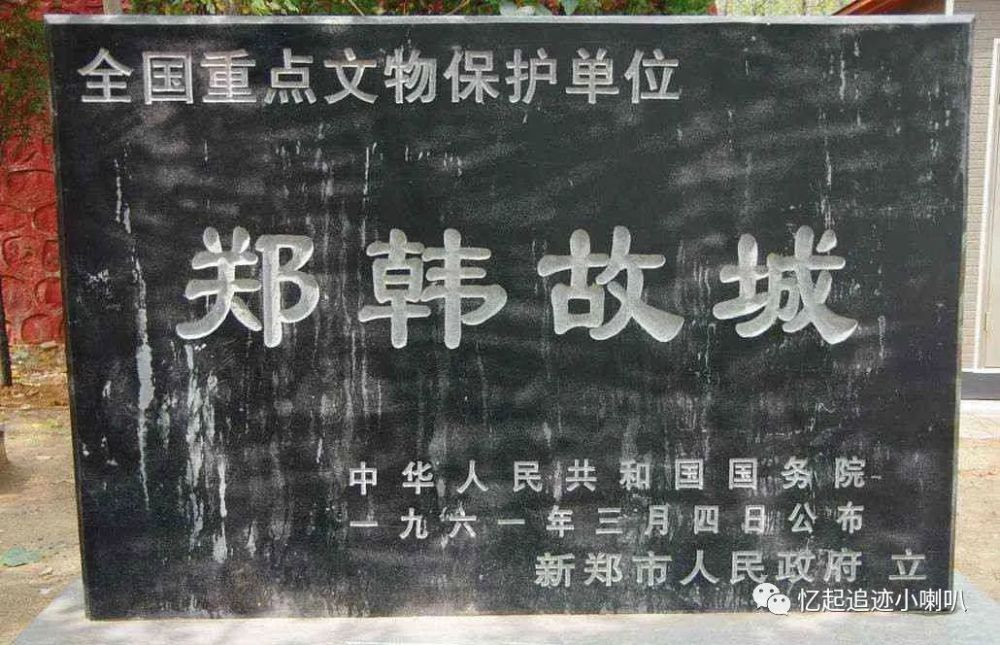 全国重点文物保护单位
郑韩故城
中华人民共和国国务院
一九六一年三月四日公布
新郑市人民政府 立
忆起追迹小喇叭